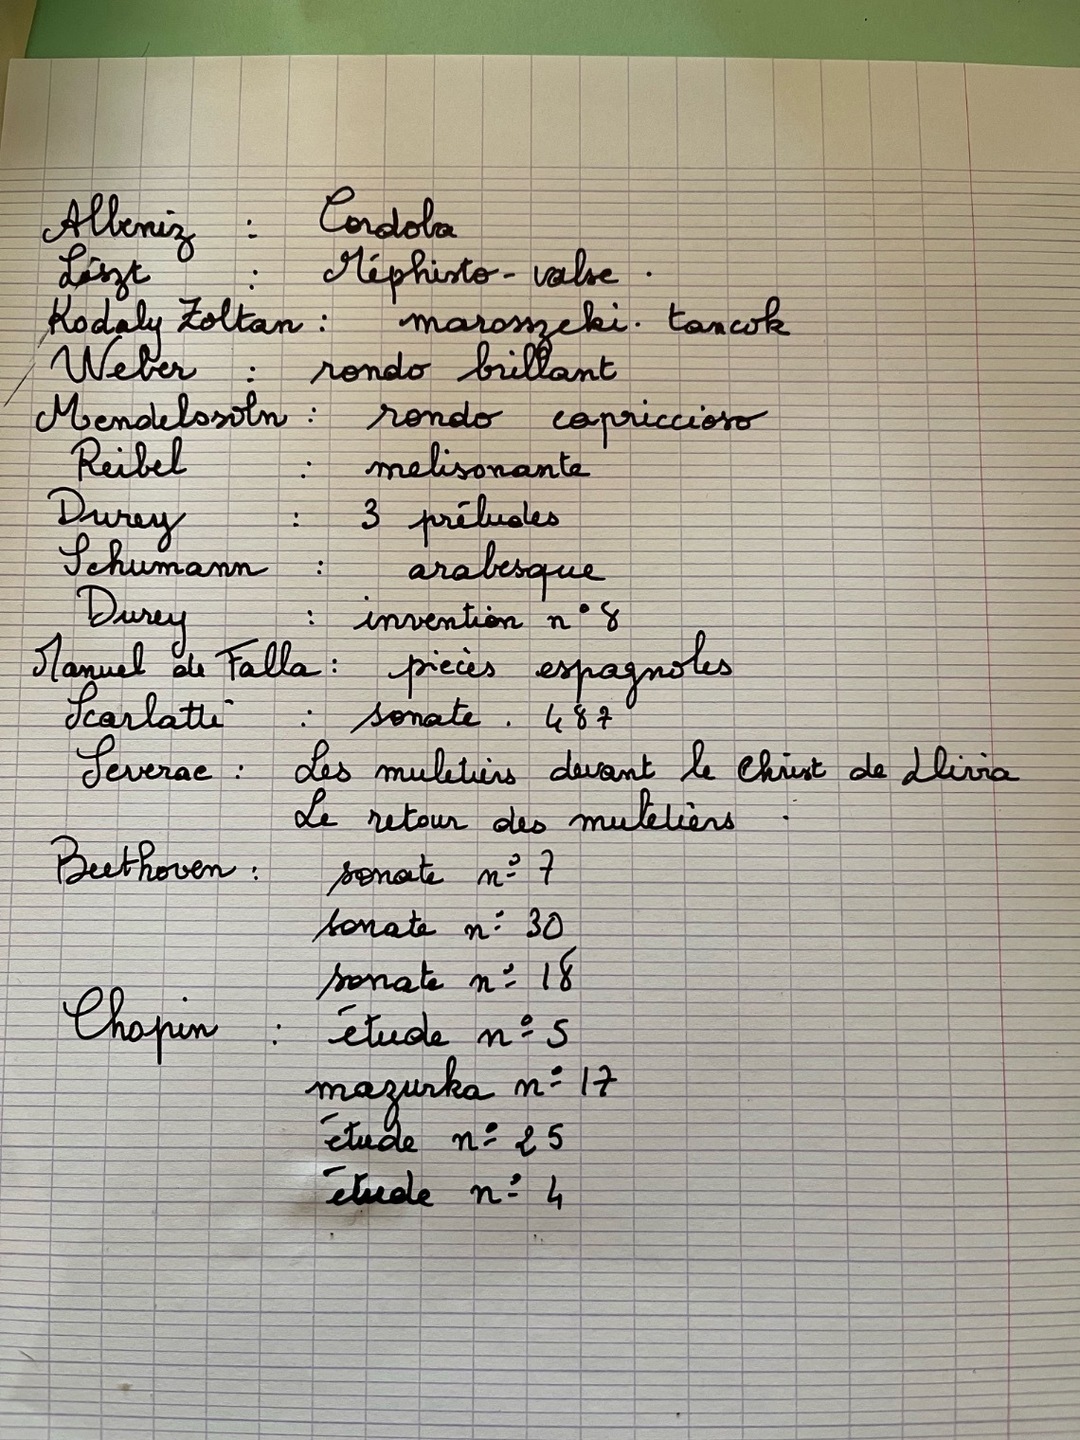 Albeniz : Cordoba
Liszt : Méphisto-valse.
Kodaly Zoltan : marosszeki. tancok
Weber : rondo brillant
Mendelssohn : rondo capriccioso
Reibel : melisonante
Durey : 3 préludes
Schumann : arabesque
Durey : invention n° 8
Manuel de Falla : pièces espagnoles
Scarlatti : sonate. 487
Severac : Les muletiers devant le Christ de Llivia
Le retour des muletiers
Beethoven : sonate n° 7
sonate n° 30
sonate n° 18
Chopin : étude n° 5
mazurka n° 17
étude n° 25
étude n° 4